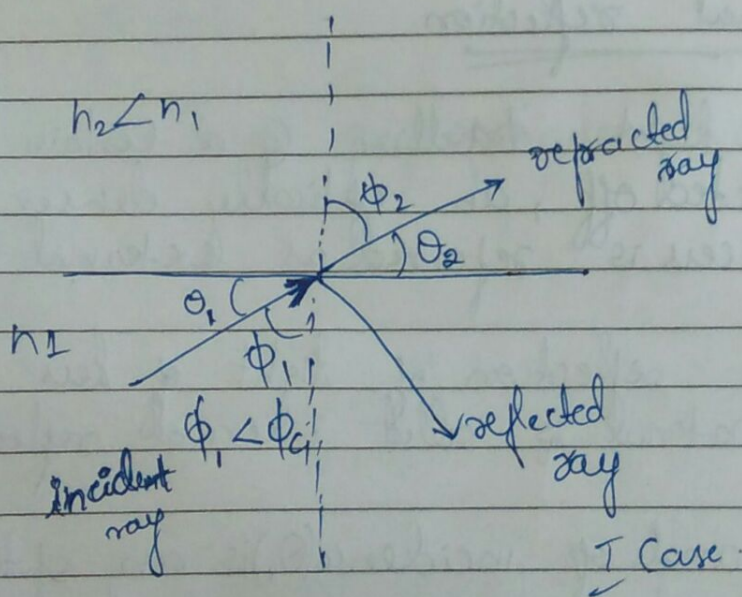 n₂ < n₁
refracted
ray
ϕ₂
θ₂
θ₁
n1
ϕ₁
ϕ₁ < ϕc
reflected
ray
incident
ray
I Case